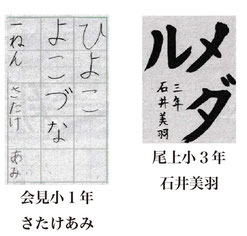 ひよこ
よこづな
一ねん さたけ あみ
会見小1年
さたけあみ
メダ
ル
三年
石井美羽
尾上小3年
石井美羽